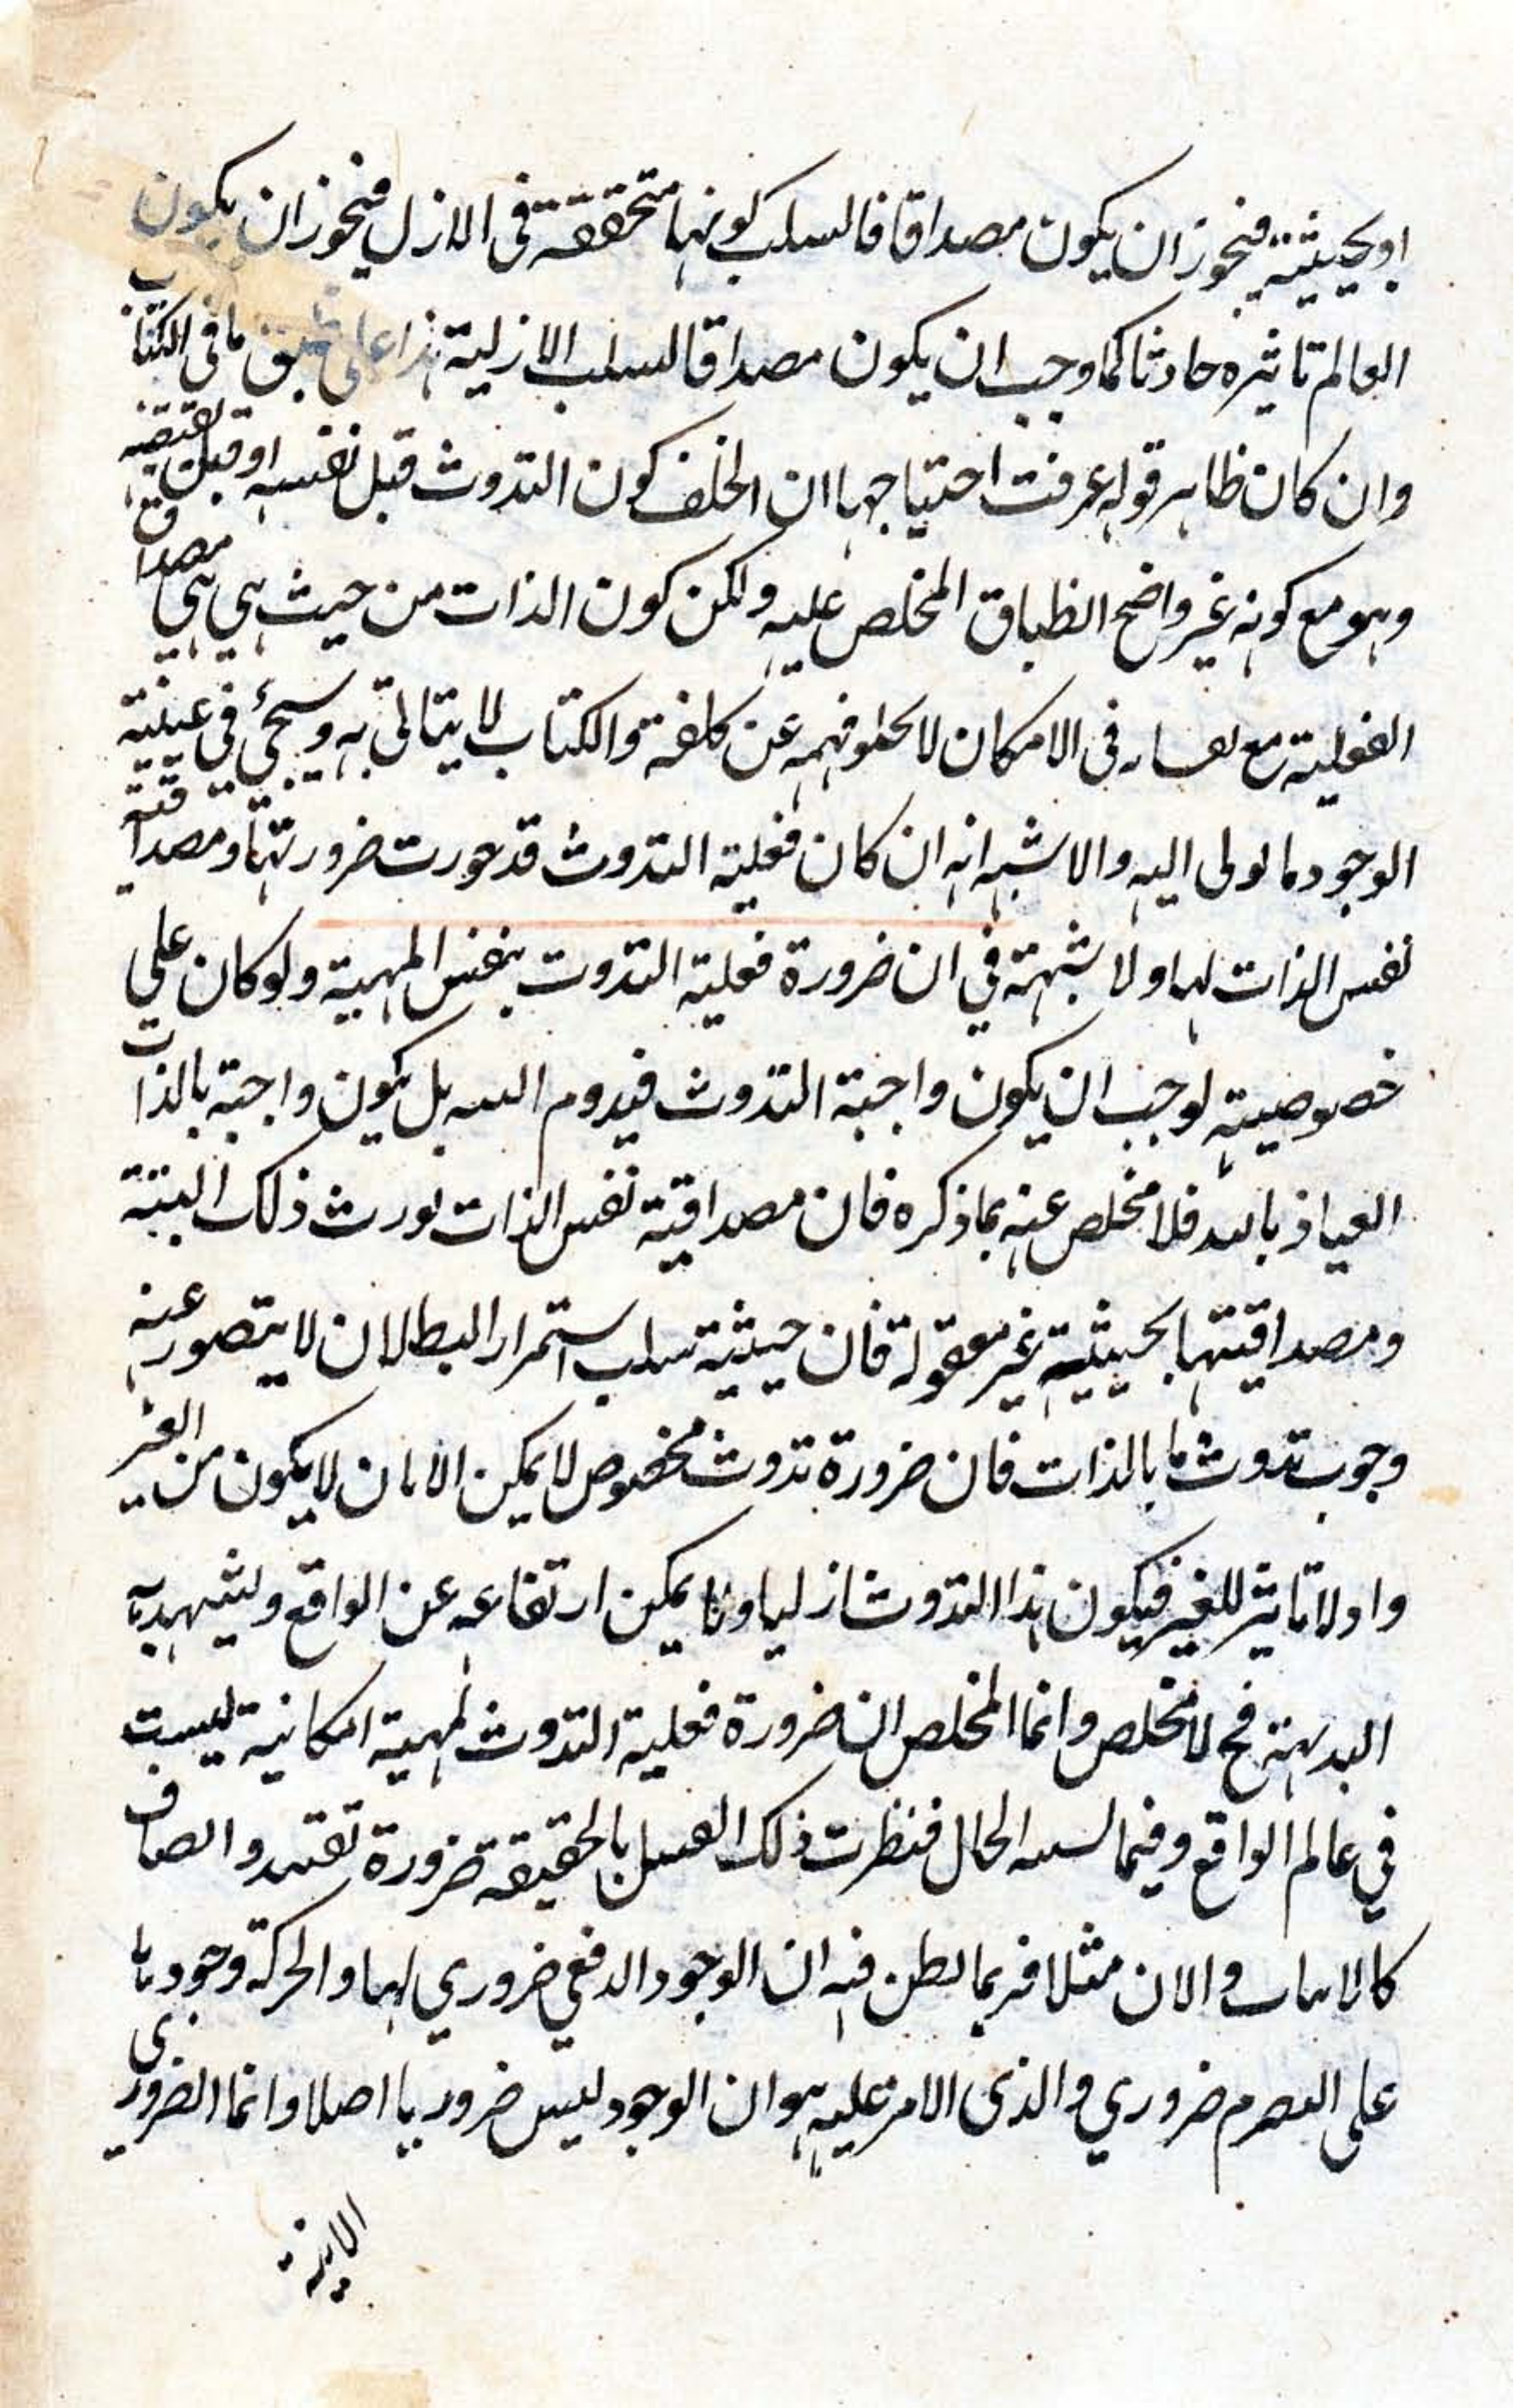 او بحيثية فيجوز ان يكون مصداقا فالسلب كونها متحققة فى الازل فيجوز ان يكون
العالم تاثيره حادثا كما وجب ان يكون مصداقا لسلب الازلية هذا على ما فى الكتاب
وان كان ظاهر قوله عرفت احتياجها ان الخلف كون التذوت قبل نفسه او قبل
وهو مع كونه غير واضح انطباق المخلص عليه ولكن كون الذات من حيث هي هي مصداق
الفعلية مع فى الامكان لا يخلو فهمه عن كلفة والكتاب لا به وسيجئ في عينية
الوجود ما اليه والاشبه انه ان كان فعلية التذوت قد جوزت ضرورتها ومصداقية
نفس الذات لها ولا شبهة في ان ضرورة فعلية التذوت بنفس المهية ولو كان على
خصوصية لوجب ان يكون واجبة التذوت فيدوم البتة بل يكون واجبة بالذات
العياذ بالله فلا مخلص عنه بما ذكره فان مصداقية نفس الذات تورث ذلك البتة
ومصداقيتها بحيثية غير معقولة فان حيثية سلب استمرار البطلان لا يتصور عنه
وجوب تذوت ما بالذات فان ضرورة تذوت مخصوص لا يمكن الا بان لا يكون من الغير
واذ لا تاثير للغير فيكون هذا التذوت ازليا ولا يمكن ارتفاعه عن الواقع وليشهد به
البديهة فح لا مخلص وانما المخلص ان ضرورة فعلية التذوت لمهية امكانية ليست
في عالم الواقع وفيما الحال فنظرت ذلك بالحقيقة ضرورة
والان مثلا فربما يظن فيه ان الوجود الدفعي ضروري لها والحركة وجودها
على التصرم ضروري والذى الامر عليه هو ان الوجود ليس ضروريا اصلا وانما الضروري